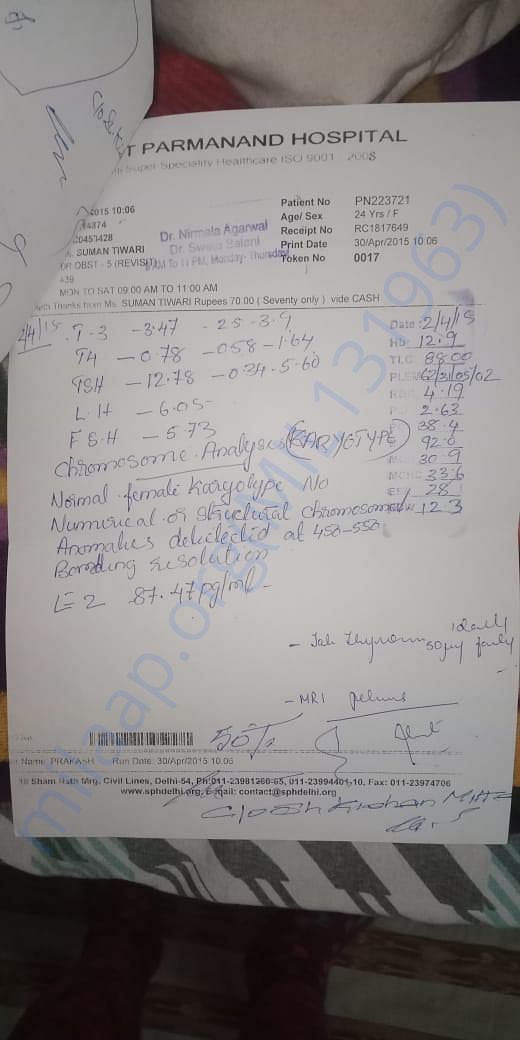 T PARMANAND HOSPITAL
Super Speciality Healthcare ISO 9001 : 2008
2015 10:06
Patient No PN223721
Age/ Sex 24 Yrs / F
20453428
Receipt No RC1817649
SUMAN TIWARI
Print Date 30/Apr/2015 10:06
OBST - 5 (REVISIT)
Token No 0017
Dr. Nirmala Agarwal
TO 11 PM, Monday- Thursday
439
MON TO SAT 09:00 AM TO 11:00 AM
with Thanks from Ms. SUMAN TIWARI Rupees 70.00 ( Seventy only ) vide CASH
2/4/15 . T-3 - 3.47 - 2.5-3.9
T4 - 0.78 - 0.58-1.64
TSH - 12.78 - 0.34-5.60
L.H - 6.05
FSH - 5.73
Chromosome Analyses (KARYOTYPE)
Normal female Karyotype No
Numurical or structural chromosomal
Anomalies detected at 450-550
Banding resolution
E2 87.47 pg/ml -
Date: 2/4/15
Hb 12.9
TLC 8800
62/31/05/02
4.19
2.63
38.4
92.0
30.9
MCHC 33.6
28
12.3
- Tab Thyronorm 50 µg
- MRI pelvis
50%
Name: PRAKASH Run Date: 30/Apr/2015 10:06
18 Sham Nath Mrg. Civil Lines, Delhi-54, Ph:011-23981260-65, 011-23994401-10, Fax: 011-23974706
www.sphdelhi.org, E-mail: contact@sphdelhi.org
milaap.org